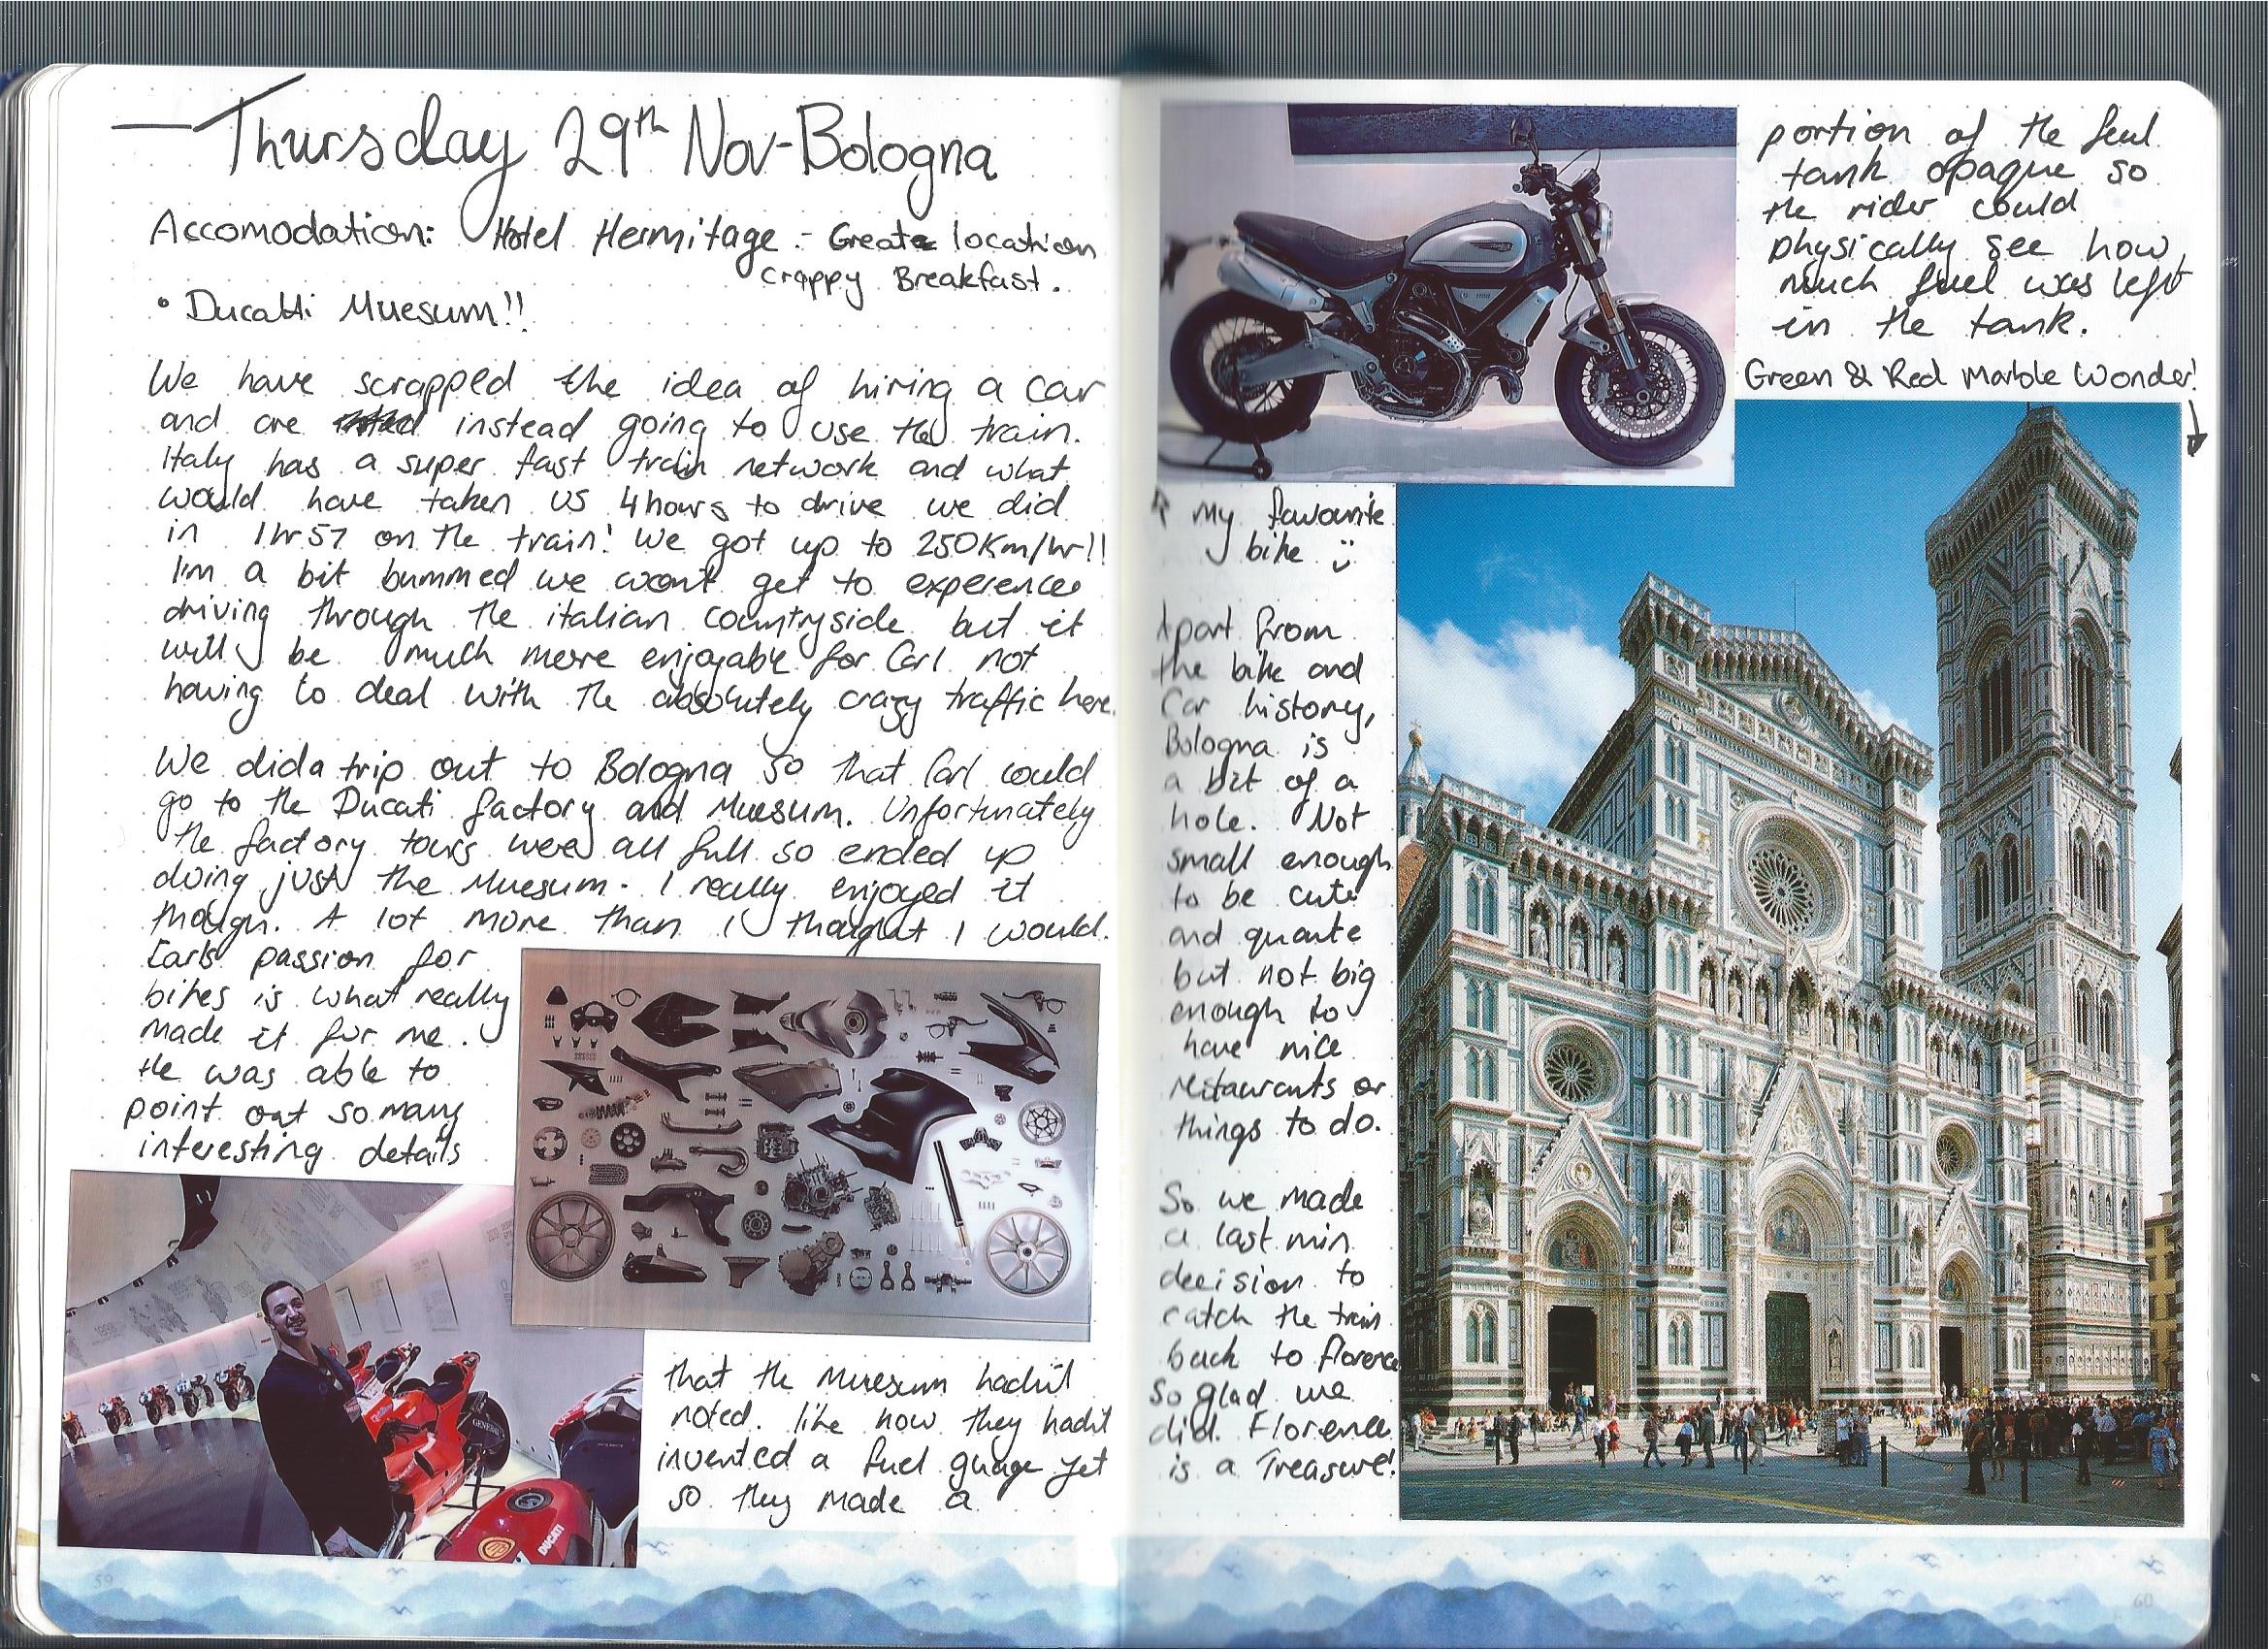 Thursday 29th Nov-Bologna
Accomodation: Hotel Hermitage - Great location
Crappy Breakfast.
• Ducatti Muesum!!
We have scrapped the idea of hiring a car
and are instead going to use the train.
Italy has a super fast train network and what
would have taken us 4hours to drive we did
in 1hr57 on the train! We got up to 250Km/hr!!
I'm a bit bummed we won't get to experience
driving through the italian countryside but it
will be much more enjoyable for Carl not
having to deal with the absolutely crazy traffic here.
We did a trip out to Bologna so that Carl could
go to the Ducati factory and Muesum. Unfortunately
the factory tours were all full so ended up
doing just the Muesum. I really enjoyed it
though. A lot more than I thought I would.
Carls passion for
bikes is what really
made it for me.
He was able to
point out so many
interesting details
that the Muesum hadn't
noted. like how they hadn't
invented a fuel guage yet
so they made a
GENERAL
DUCATI
59
portion of the feul
tank opaque so
the rider could
physically see how
much fuel was left
in the tank.
Green & Red Marble Wonder!
My favourite
bike
Apart from
the bike and
Car history,
Bologna is
a bit of a
hole. Not
small enough
to be cute
and quante
but not big
enough to
have nice
restaurants or
things to do.
So we made
a last min
decision to
catch the train
back to florence
so glad we
did. Florence
is a Treasure!
60